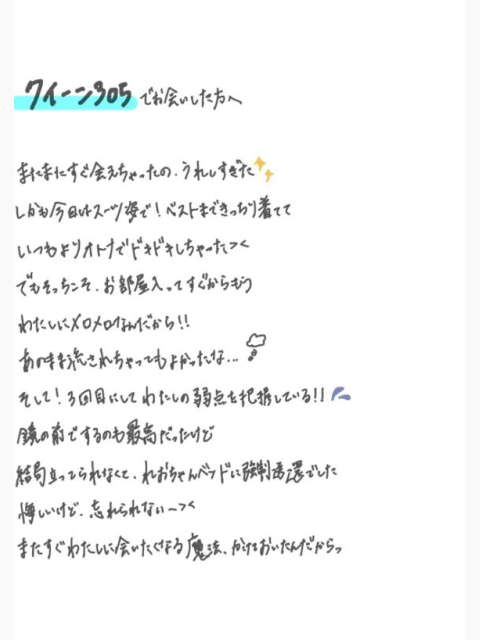 クイーン305でお会いした方へ
またまたすぐ会えちゃったの、うれしすぎた
しかも今日はスーツ姿で！ベストまできっちり着てて
いつもよりオトナでドキドキしちゃったつく
でもそっちこそ、お部屋入ってすぐからもう
わたしにメロメロなんだから!!
あのまま流されちゃってもよかったな...
そして！3回目にしてわたしの弱点を把握している!!
鏡の前でするのも最高だったけど
結局立ってられなくて、れおちゃんベッドに強制送還でした
悔しいけど、忘れられないーつく
またすぐわたしに会いたくなる魔法、かけておいたんだからっ